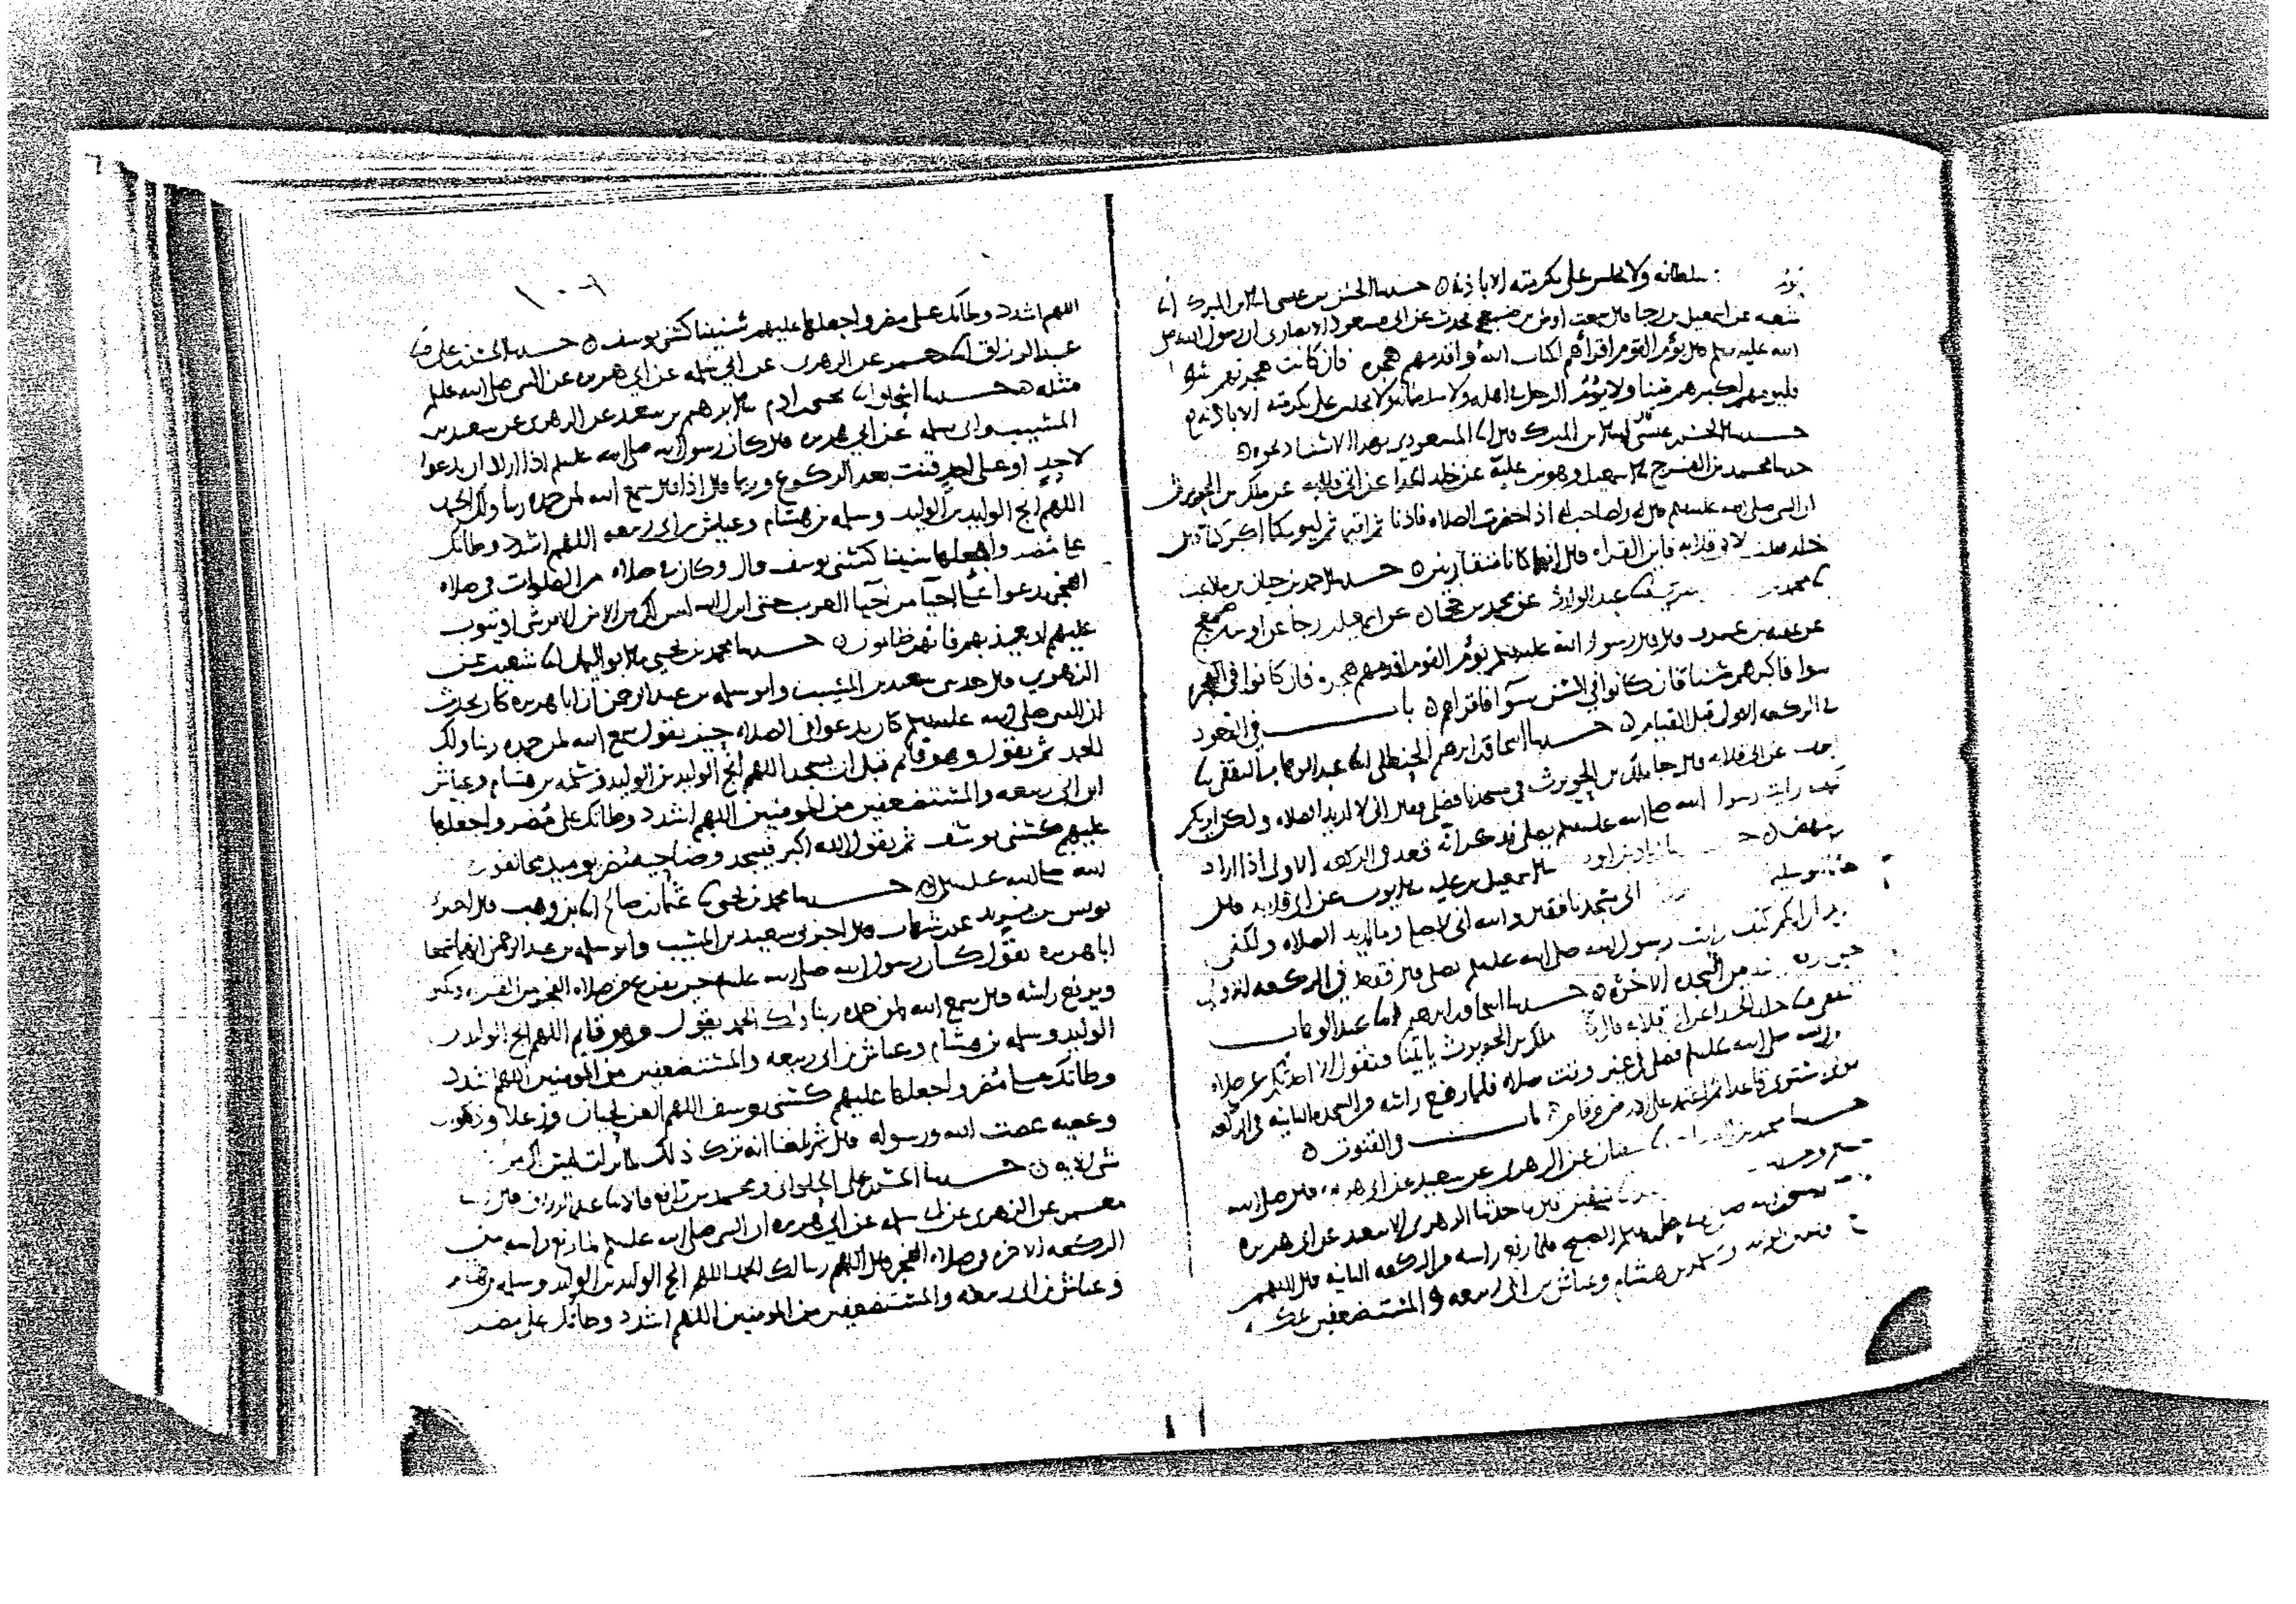 سلطانه ولا يجلس على تكرمته الا باذنه حدثنا الحسن بن عيسى ابن المبرك انا
شعبه عن اسمعيل بن رجا قال سمعت اوس بن ضمعج يحدث عن ابي مسعود الانصاري ان رسول الله صلى
الله عليه وسلم قال يؤم القوم اقراهم لكتاب الله واقدمهم هجره فان كانت هجرتهم سوا
فليومهم اكبرهم سنا ولا يؤم الرجل في اهله ولا سلطانه ولا يجلس على تكرمته الا باذنه
حدثنا الحسن بن عيسى ابن المبرك قال انا المسعودي بهذا الاسناد نحوه
حدثنا محمد بن الفرج اسمعيل وهو بن علية عن خلد الحذا عن ابي قلابه عن ملك بن الحويرث
ان النبي صلى الله عليه وسلم قال له ولصاحب له اذا حضرت الصلاه فاذنا ثم اقيما ثم ليومكما اكبركما قال
خلد فقلت لابي قلابه فاين القراه قال انهما كانا متقاربين حدثنا احمد بن
محمد بن عبد الوارث عن محمد بن جحاده عن اسمعيل بن رجا عن اوس بن ضمعج
عن عقبه بن عمرو قال قال رسول الله عليه وسلم يؤم القوم اقدمهم هجره فان كانوا في الهجره
سوا فاكبرهم سنا فان كانوا في السن سوا فاقراهم باب في القعود
في الركعه الاولى قبل القيام حدثنا اسحاق بن ابرهيم الحنظلي انا عبد الوهاب الثقفي
ايوب عن ابي قلابه قال جا ملك بن الحويرث في مسجدنا فصلى فقال اني لا اريد الصلاه ولكن اريكم
كيف رايت رسول الله صلى الله عليه وسلم يصلي فذكر انه قعد في الركعه الاولى اذا اراد
ينهض زياد بن ايوب اسمعيل بن عليه ايوب عن ابي قلابه قال
الى مسجدنا فقال والله اني لاصلي وما اريد الصلاه ولكني
اريد ان اريكم كيف رايت رسول الله صلى الله عليه وسلم يصلي قال فقعد في الركعه الاولى
حين رفع من السجده الاخره حدثنا اسحاق بن ابرهيم انا عبد الوهاب
الثقفي خلد الحذا عن ابي قلابه قال كان ملك بن الحويرث ياتينا فيقول الا احدثكم عن صلاه
رسول الله صلى الله عليه وسلم فصلى في غير وقت صلاه فلما رفع راسه من السجده الثانيه في الركعه
استوى قاعدا ثم اعتمد على الارض وقام باب في القنوت
حدثنا محمد بن سفين عن الزهري عن سعيد عن ابي هريره قال صلى الله
سفين قال حدثنا الزهري سعيد عن ابي هريره
الصبح فلما رفع راسه من الركعه الثانيه قال اللهم
الوليد وسلمه بن هشام وعياش بن ابي ربيعه والمستضعفين بمكه
١٠٦
اللهم اشدد وطاتك على مضر واجعلها عليهم سنينا كسني يوسف حدثنا الحسن بن علي
عبد الرزاق انا معمر عن الزهري عن ابي سلمه عن ابي هريره عن النبي صلى الله عليه وسلم
مثله حدثنا اسحاق انا يحيى بن ادم ابرهيم بن سعد عن الزهري عن سعيد بن
المسيب وابي سلمه عن ابي هريره قال كان رسول الله صلى الله عليه وسلم اذا اراد ان يدعوا
لاحد او على احد قنت بعد الركوع وربما قال اذا قال سمع الله لمن حمده ربنا ولك الحمد
اللهم انج الوليد بن الوليد وسلمه بن هشام وعياش بن ابي ربيعه اللهم اشدد وطاتك
على مضر واجعلها سنينا كسني يوسف قال وكان في صلاه من الصلوات في صلاه
الفجر يدعوا على احيا من احيا العرب حتى انزل الله ليس لك من الامر شي او يتوب
عليهم او يعذبهم فانهم ظالمون حدثنا محمد بن يحيى ابو اليمان انا شعيب عن
الزهري قال حدثني سعيد بن المسيب وابو سلمه بن عبد الرحمن ان ابا هريره كان يحدث
ان النبي صلى الله عليه وسلم كان يدعوا في الصلاه حين يقول سمع الله لمن حمده ربنا ولك
الحمد ثم يقول وهو قايم قبل ان يسجد اللهم انج الوليد بن الوليد وسلمه بن هشام وعياش
ابن ابي ربيعه والمستضعفين من المومنين اللهم اشدد وطاتك على مضر واجعلها
عليهم كسني يوسف ثم يقول الله اكبر فيسجد وضاحيه مضر يوميذ مخالفون
لرسول الله صلى الله عليه وسلم حدثنا محمد بن يحيى عثمان بن صالح انا بن وهب قال اخبرني
يونس بن يزيد عن بن شهاب قال اخبرني سعيد بن المسيب وابو سلمه بن عبد الرحمن انهما سمعا
ابا هريره يقول كان رسول الله صلى الله عليه وسلم حين يفرغ من صلاه الفجر من القراه ويكبر
ويرفع راسه قال سمع الله لمن حمده ربنا ولك الحمد يقول وهو قايم اللهم انج الوليد بن
الوليد وسلمه بن هشام وعياش بن ابي ربيعه والمستضعفين من المومنين اللهم اشدد
وطاتك على مضر واجعلها عليهم كسني يوسف اللهم العن لحيان ورعلا وذكوان
وعصيه عصت الله ورسوله قال ثم بلغنا انه ترك ذلك لما نزلت ليس لك من الامر
شي الايه حدثنا الحسن بن علي الحلواني ومحمد بن رافع قالا انا عبد الرزاق قال انا
معمر عن الزهري عن ابي سلمه عن ابي هريره ان النبي صلى الله عليه وسلم لما رفع راسه من
الركعه الاخره في صلاه الفجر قال اللهم ربنا لك الحمد اللهم انج الوليد بن الوليد وسلمه بن هشام
وعياش بن ابي ربيعه والمستضعفين من المومنين اللهم اشدد وطاتك على مضر